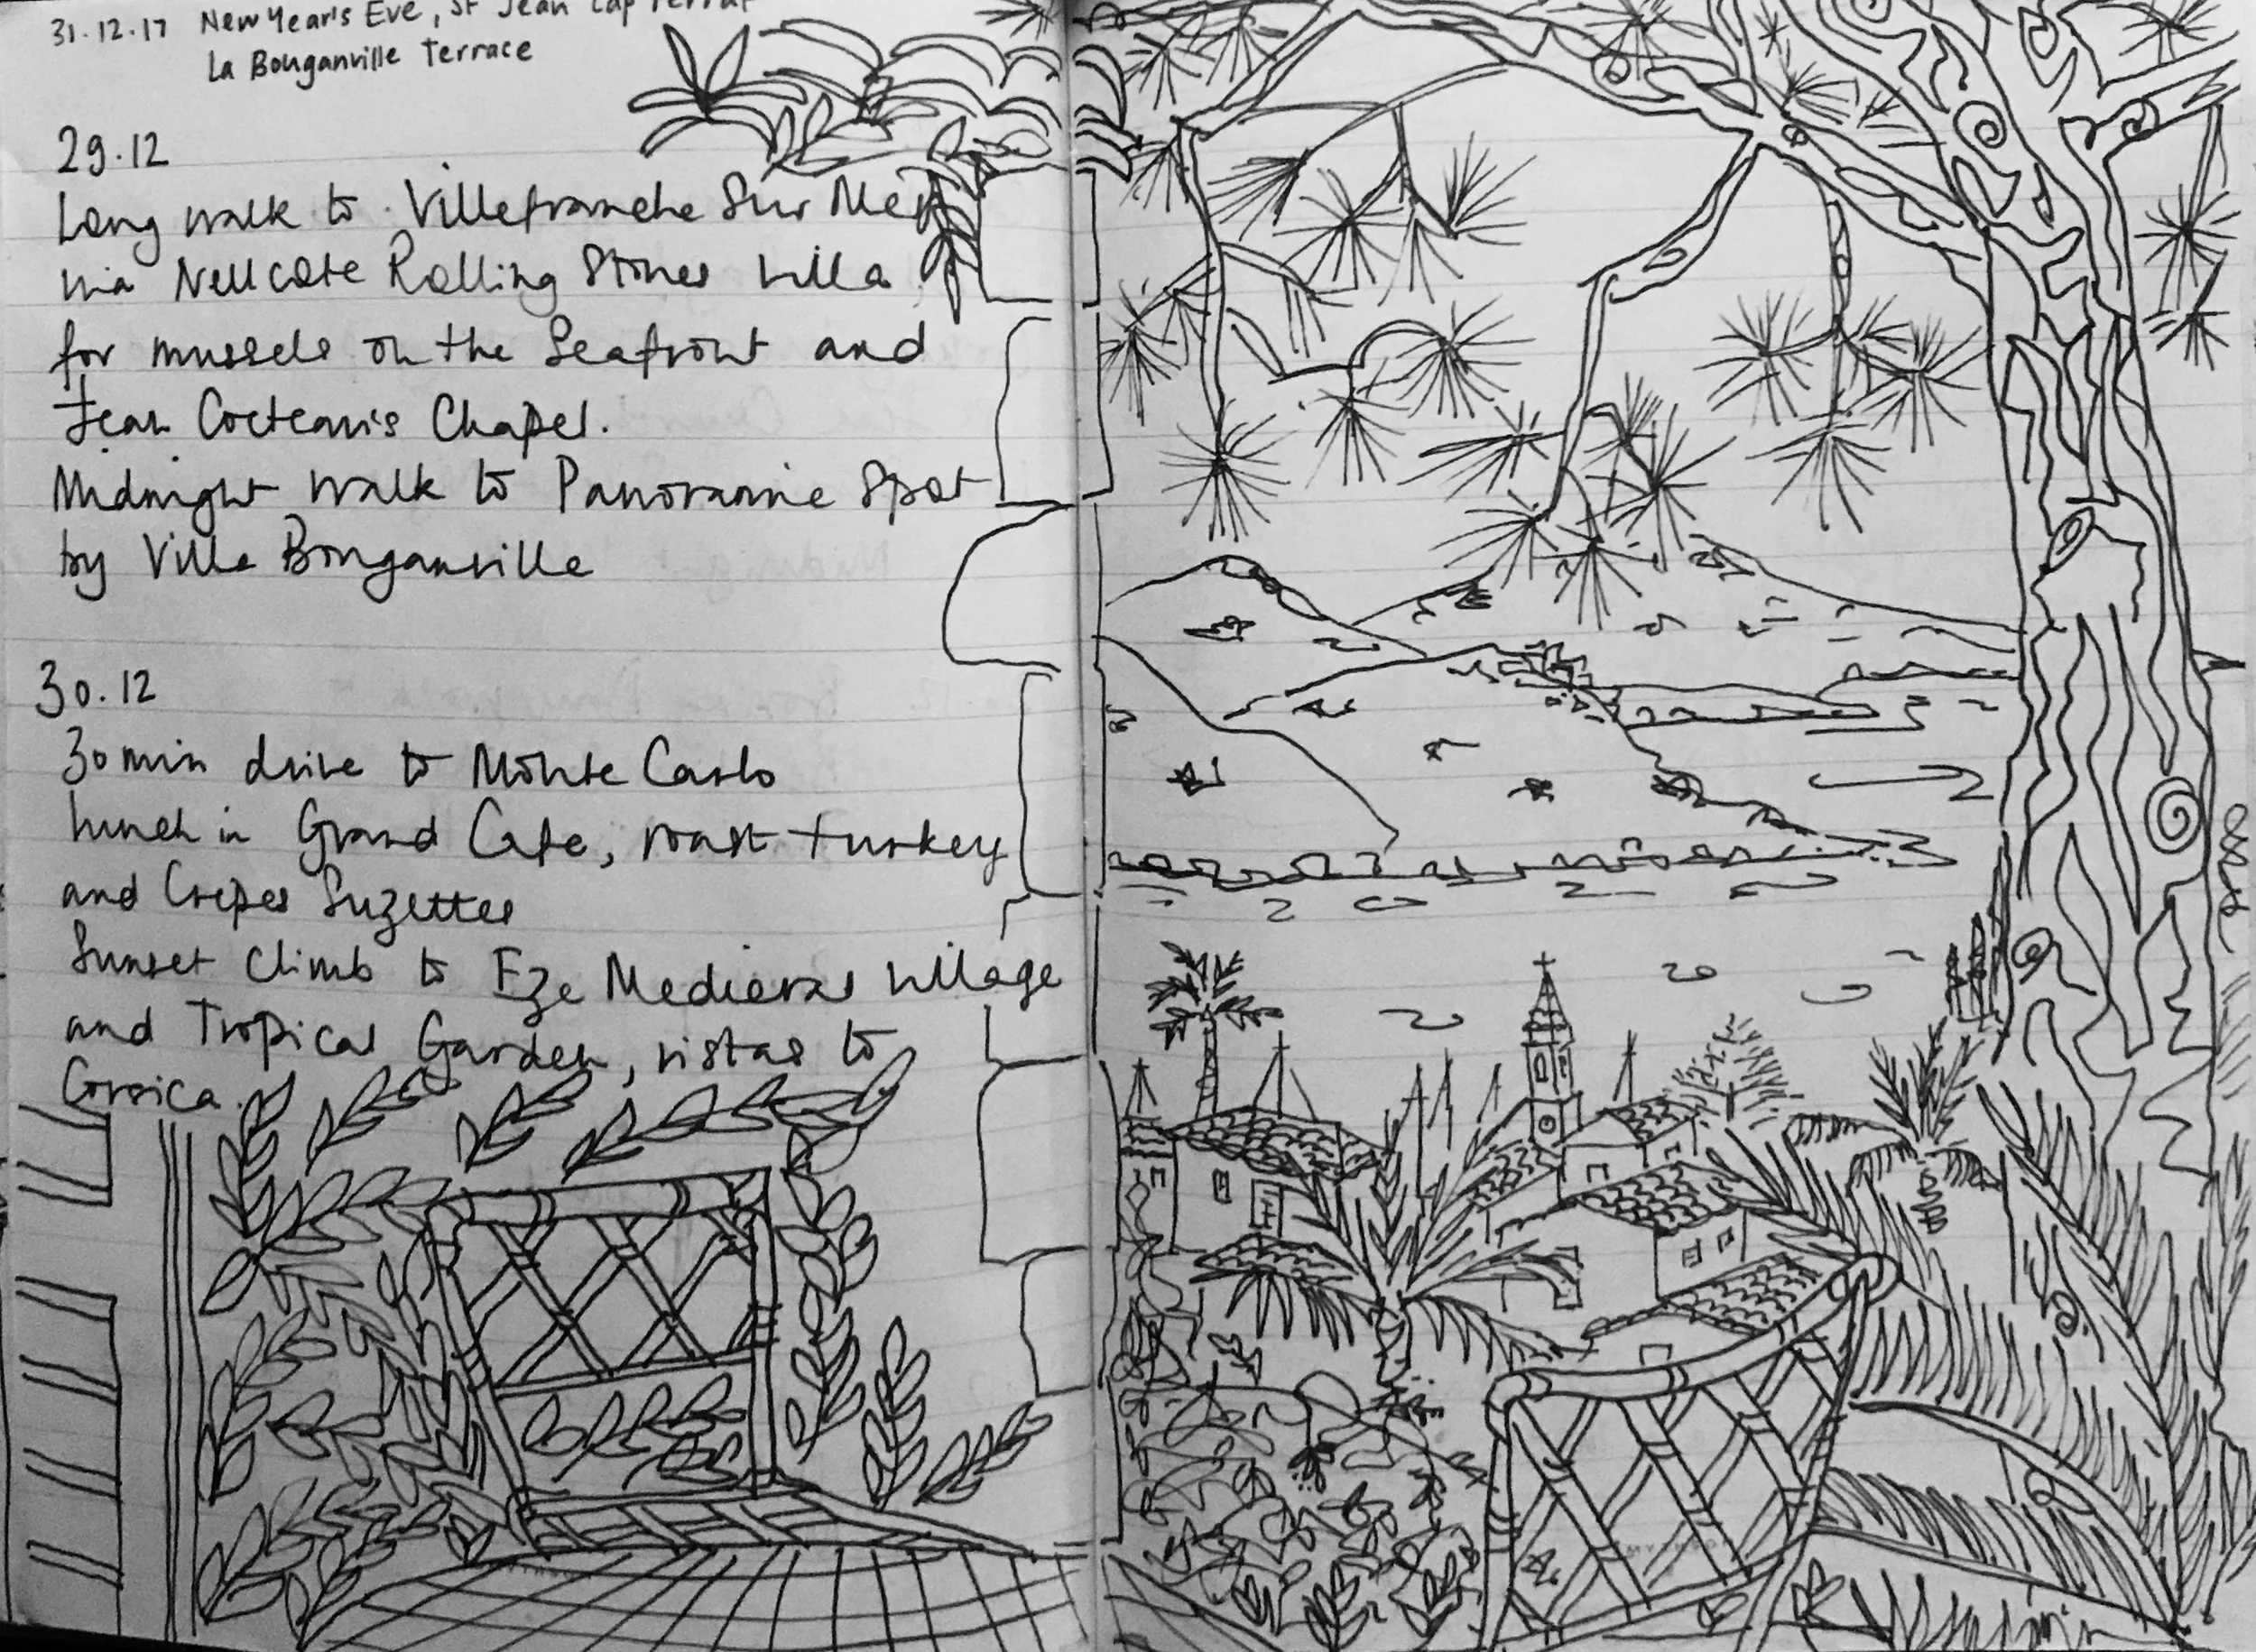 31.12.17 New Year's Eve, St Jean Cap Ferrat
La Bouganville Terrace
29.12
Long walk to Villefranche Sur Mer
via Nellcote Rolling Stones Villa
for mussels on the Seafront and
Jean Cocteau's Chapel.
Midnight walk to Panoramic Spot
by Villa Bouganville
30.12
30 min drive to Monte Carlo
lunch in Grand Cafe, roast turkey
and Crepes Suzettes
Sunset Climb to Eze Medieval village
and Tropical Garden, vistas to
Corsica.